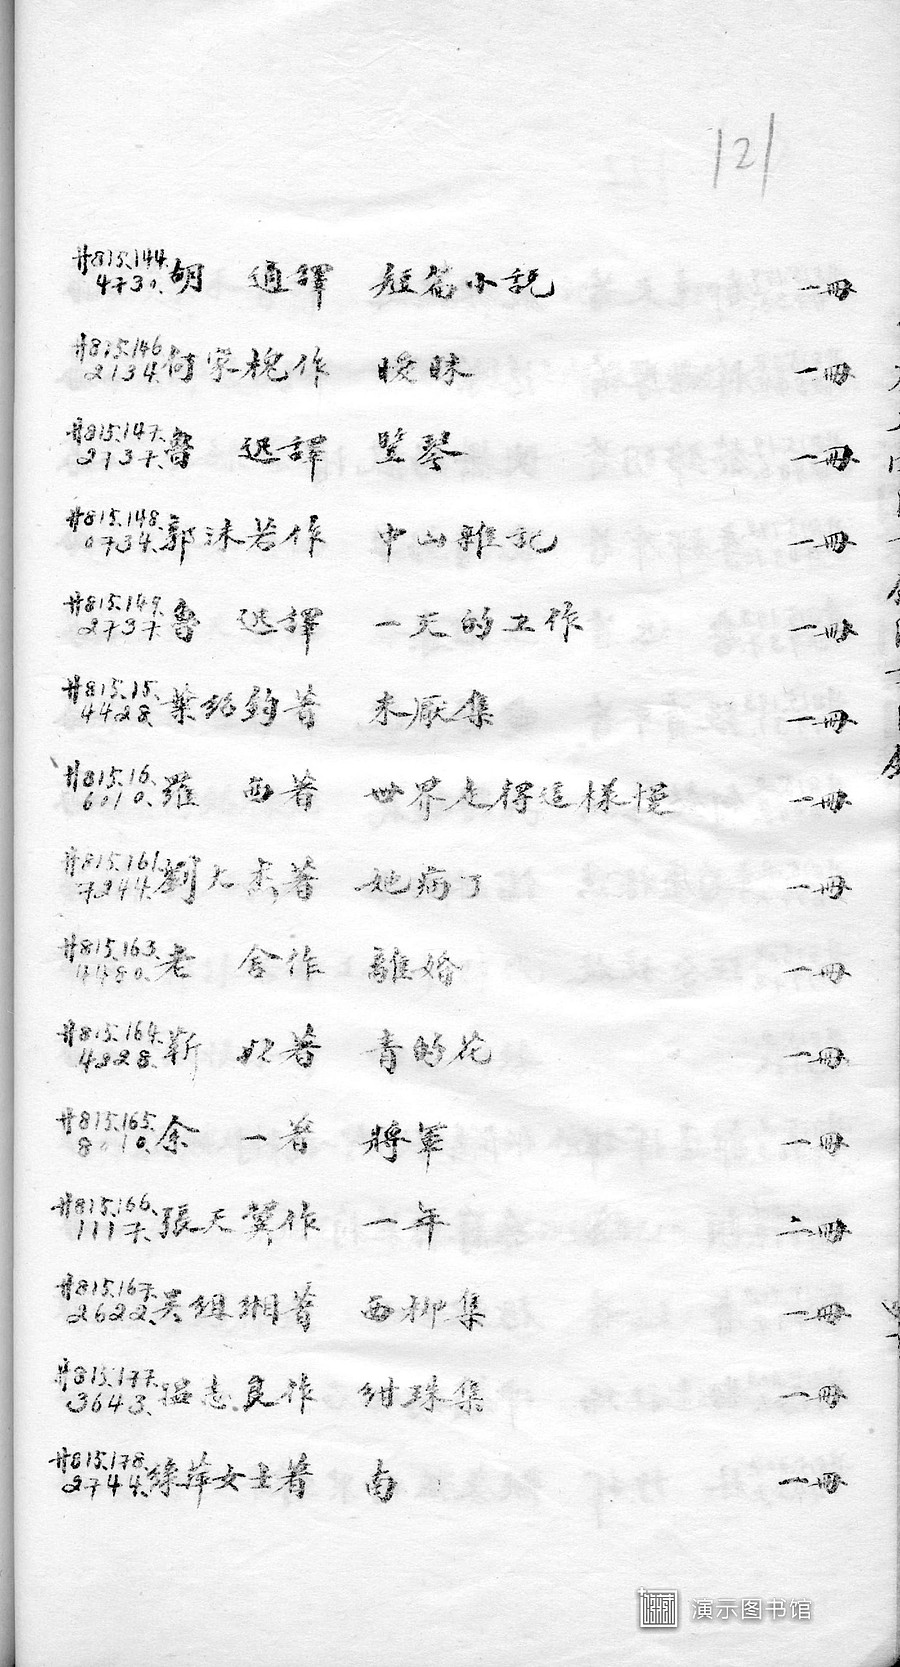 121
廾815.144. 4730. 胡 適譯 短篇小説 一冊
廾815.146 2134. 何家槐作 曖昧 一冊
廾815.147. 2737. 魯 迅譯 竪琴 一冊
廾815.148. 0734. 郭沫若作 中山雜記 一冊
廾815.149. 2737. 魯 迅譯 一天的工作 一冊
廾815.15. 4428. 葉紹鈞著 未厭集 一冊
廾815.16. 6010. 羅 西著 世界走得這樣慢 一冊
廾815.161. 7244. 劉大杰著 她病了 一冊
廾815.163. 4480. 老 舍作 離婚 一冊
廾815.164. 4328. 靳 以著 青的花 一冊
廾815.165. 8010. 余 一著 將軍 一冊
廾815.166. 1117. 張天翼作 一年 二冊
廾815.167. 2622. 吴組緗著 西柳集 一冊
廾815.177. 3643. 温志良作 紺珠集 一冊
廾815.178. 2744. 綠萍女士著 南 一冊
演示图书馆